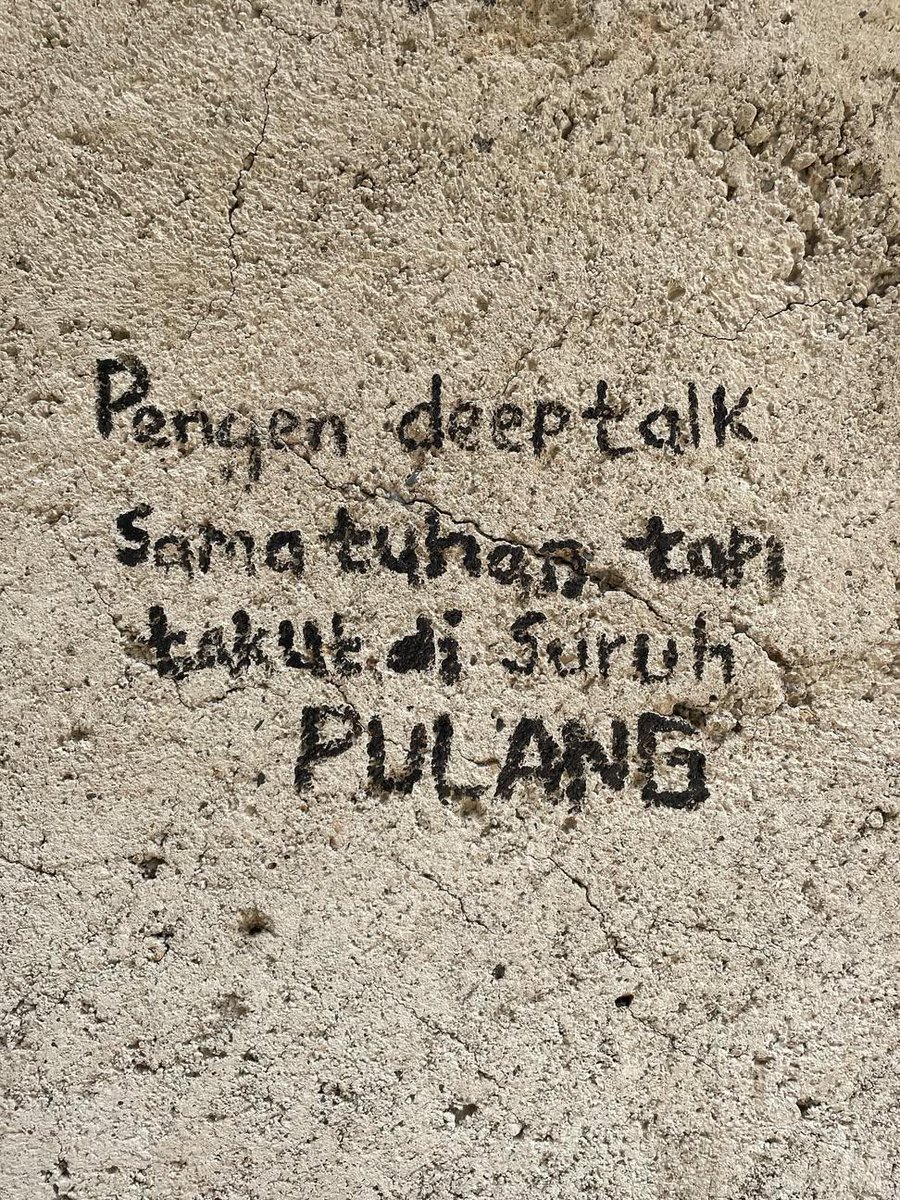 Pengen deeptalk
Sama tuhan tapi
takut di Suruh
PULANG